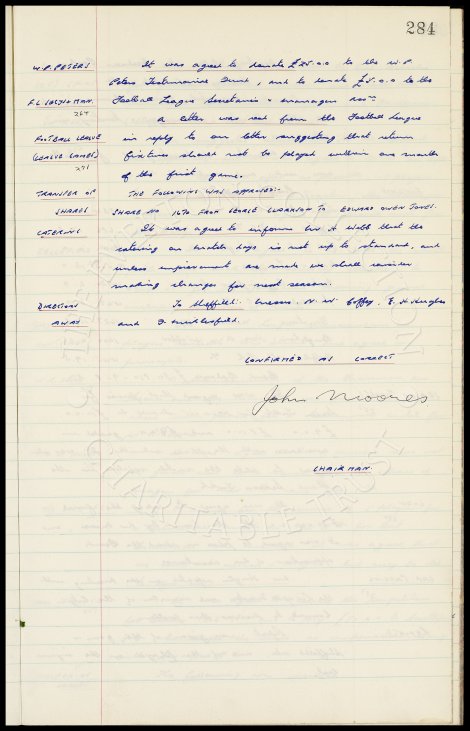 284
W.P. PETERS It was agreed to donate £25.0.0 to the W.P.
Peters Testimonial Fund, and to donate £5.0.0 to the
F.L. SECY & MAN. Football League Secretaries & managers assn.
264
A letter was read from the Football League
FOOTBALL LEAGUE in reply to our letter suggesting that return
(LEAGUE GAMES) fixtures should not be played within one month
271
of the first game.
TRANSFER OF THE FOLLOWING WAS APPROVED:-
SHARES SHARE NO 1670 FROM GEORGE CLARKSON TO EDWARD OWEN JONES.
CATERING It was agreed to inform Mr A Webb that the
catering on match days is not up to standard, and
unless improvement are made we shall consider
making changes for next season.
DIRECTION To Sheffield: Messrs. N. W. Coffey, E. H. Hughes
AWAY and F. Micklesfield.
CONFIRMED AS CORRECT
John Moores
CHAIRMAN.
CHARITABLE TRUST